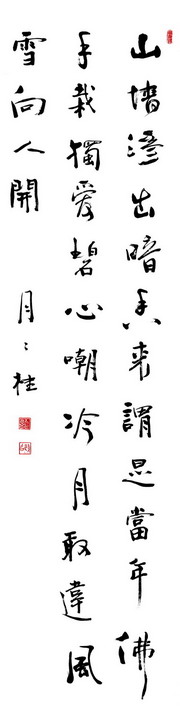 山墻滲出暗香來謂是當年佛
手栽獨愛碧心嘲冷月敢違風
雪向人開
月〻桂